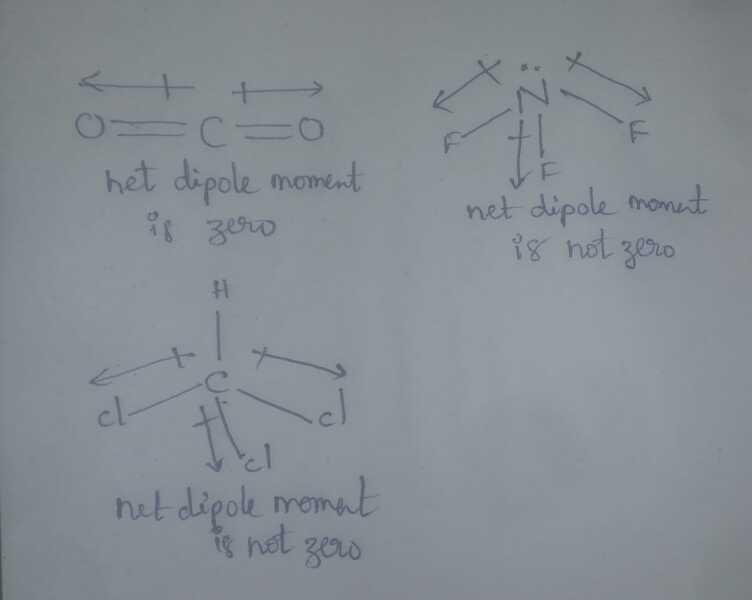 O = C = O
net dipole moment
is zero
N
F F
F
net dipole moment
is not zero
H
C
cl cl
cl
net dipole moment
is not zero